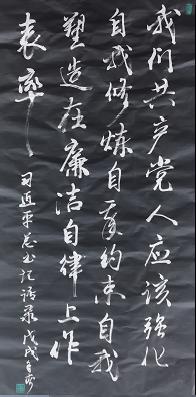 我们共产党人应该强化
自我修炼自我约束自我
塑造在廉洁自律上作
表率
习近平总书记语录戊戌